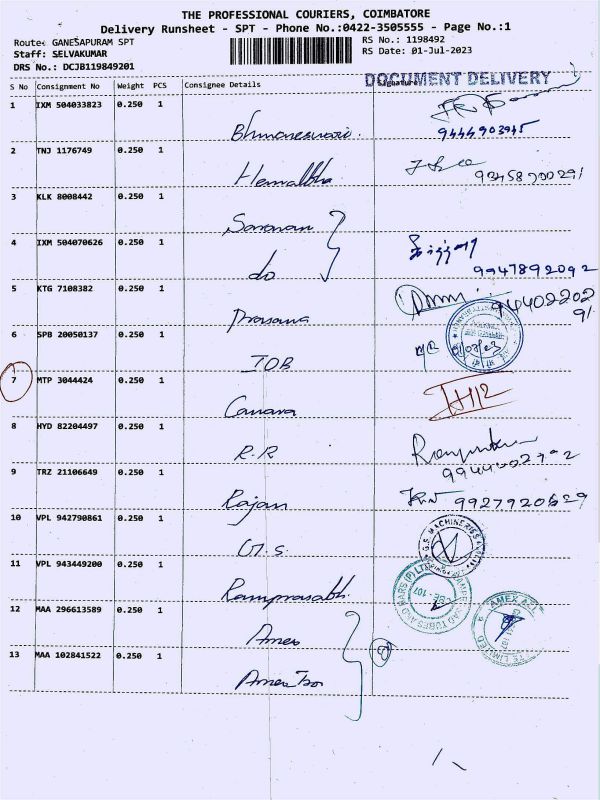 THE PROFESSIONAL COURIERS, COIMBATORE
Delivery Runsheet - SPT - Phone No.:0422-3505555 - Page No.:1
Route: GANESAPURAM SPT
Staff: SELVAKUMAR
DRS No.: DCJB119849201
RS No.: 1198492
RS Date: 01-Jul-2023
DOCUMENT DELIVERY
S No Consignment No Weight PCS Consignee Details Signature
1 IXM 504033823 0.250 1
9444903945
2 TNJ 1176749 0.250 1
3 KLK 8008442 0.250 1 Saravanan
4 IXM 504070626 0.250 1 do
9947892092
5 KTG 7108382 0.250 1 Prasana
6 SPB 20050137 0.250 1 IOB
7 MTP 3044424 0.250 1 Canara
8 HYD 82204497 0.250 1 R.R
9 TRZ 21106649 0.250 1 Rajan
9927920629
10 VPL 942790861 0.250 1 G.S. G.S. MACHINERIES
11 VPL 943449200 0.250 1 Ramprasath
CBE-107
12 MAA 296613589 0.250 1 Amex
13 MAA 102841522 0.250 1